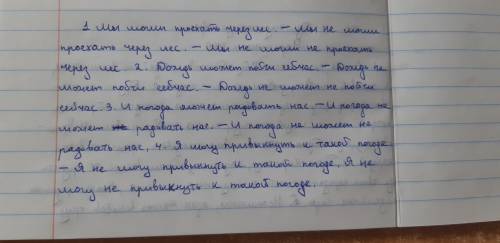 1 Мы могли проехать через лес. – Мы не могли
проехать через лес. – Мы не могли не проехать
через лес 2. Дождь может пойти сейчас. – Дождь не
может пойти сейчас. – Дождь не может не пойти
сейчас. 3. И погода может радовать нас – И погода не
может радовать нас. – И погода не может не
радовать нас, 4. Я могу привыкнуть к такой погоде
– Я не могу привыкнуть к такой погоде, Я не
могу не привыкнуть к такой погоде.